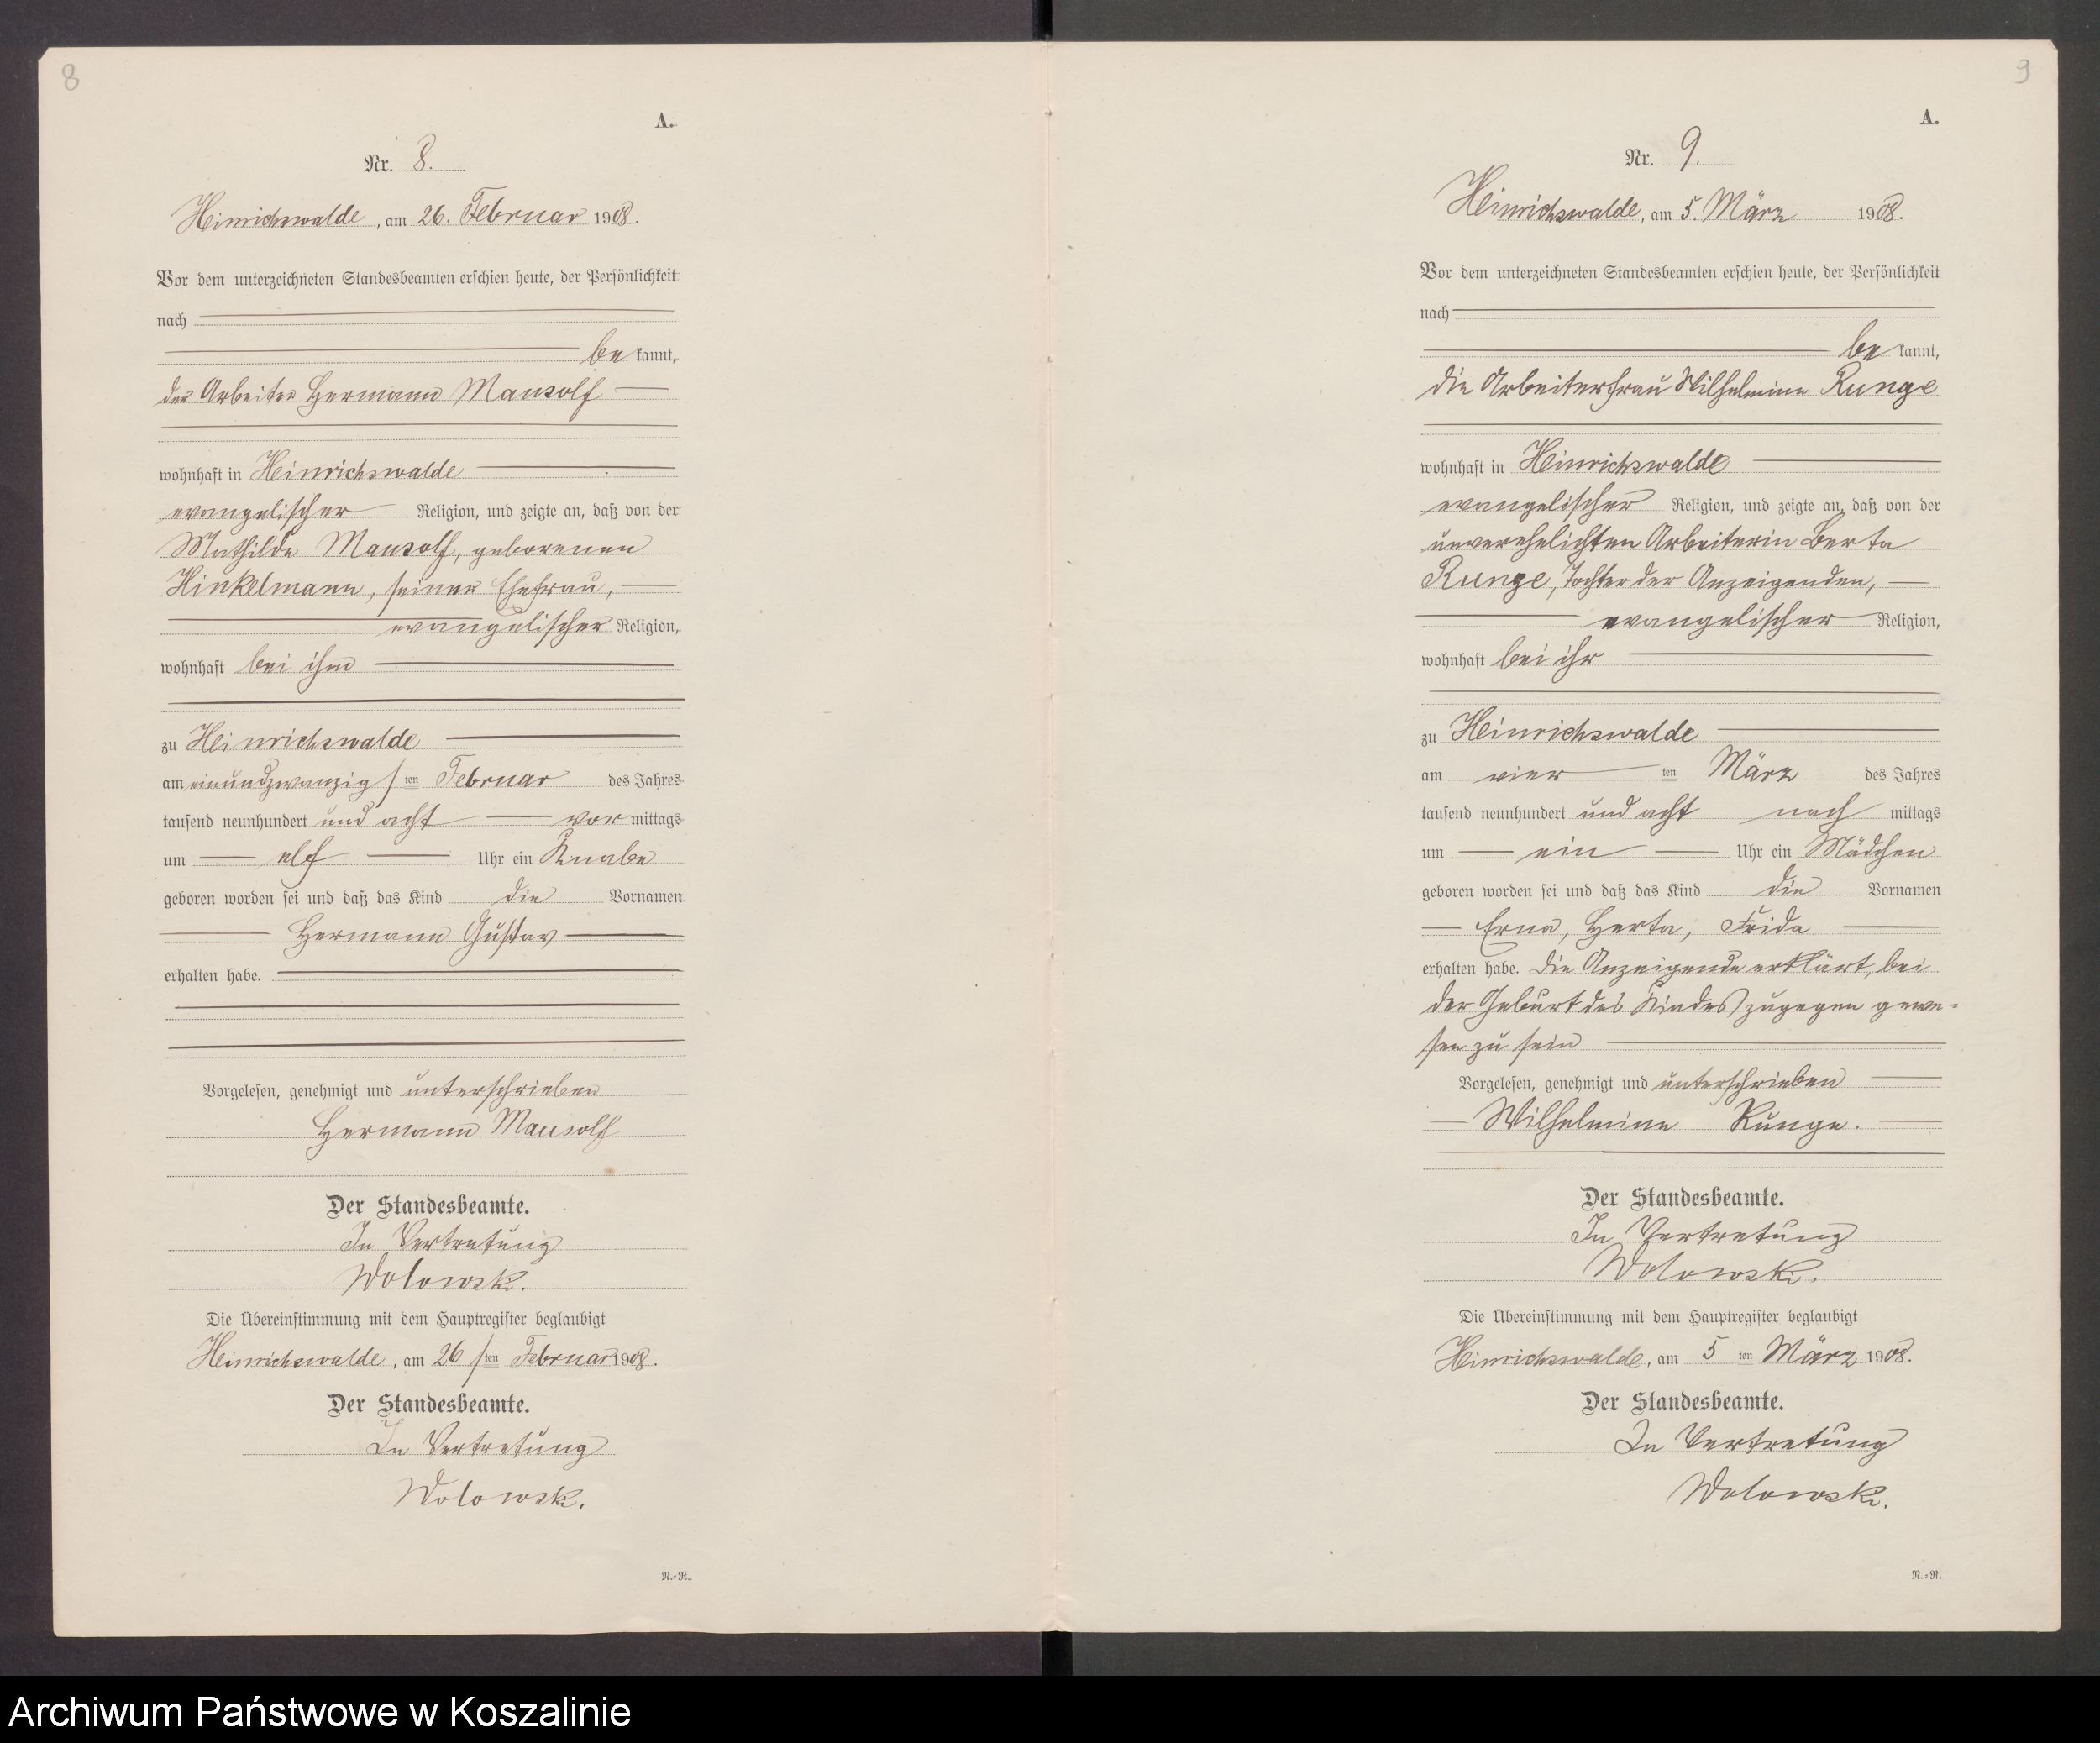 8
A.
Nr. 8.
Heinrichswalde, am 26. Februar 1908.
Vor dem unterzeichneten Standesbeamten erschien heute, der Persönlichkeit
nach
be kannt,
der Arbeiter Hermann Mansolf
wohnhaft in Heinrichswalde
evangelischer Religion, und zeigte an, daß von der
Mathilde Mansolf, geborenen
Hinkelmann, seiner Ehefrau,
evangelischer Religion,
wohnhaft bei ihm
zu Heinrichswalde
am einundzwanzig ten Februar des Jahres
tausend neunhundert und acht vor mittags
um elf Uhr ein Knabe
geboren worden sei und daß das Kind die Vornamen
Hermann Gustav
erhalten habe.
Vorgelesen, genehmigt und unterschrieben
Hermann Mansolf
Der Standesbeamte.
In Vertretung
Wolowski.
Die Übereinstimmung mit dem Hauptregister beglaubigt
Heinrichswalde, am 26 ten Februar 1908.
Der Standesbeamte.
In Vertretung
Wolowski.
N.-R.
9
A.
Nr. 9.
Heinrichswalde, am 5. März 1908.
Vor dem unterzeichneten Standesbeamten erschien heute, der Persönlichkeit
nach
be kannt,
die Arbeiterfrau Wilhelmine Runge
wohnhaft in Heinrichswalde
evangelischer Religion, und zeigte an, daß von der
unverehelichten Arbeiterin Berta
Runge, Tochter der Anzeigenden,
evangelischer Religion,
wohnhaft bei ihr
zu Heinrichswalde
am vier ten März des Jahres
tausend neunhundert und acht nach mittags
um ein Uhr ein Mädchen
geboren worden sei und daß das Kind die Vornamen
Erna, Herta, Frida
erhalten habe. Die Anzeigende erklärt, bei
der Geburt des Kindes zugegen gewe-
sen zu sein
Vorgelesen, genehmigt und unterschrieben
Wilhelmine Runge.
Der Standesbeamte.
In Vertretung
Wolowski.
Die Übereinstimmung mit dem Hauptregister beglaubigt
Heinrichswalde, am 5 ten März 1908.
Der Standesbeamte.
In Vertretung
Wolowski.
N.-R.
Archiwum Państwowe w Koszalinie